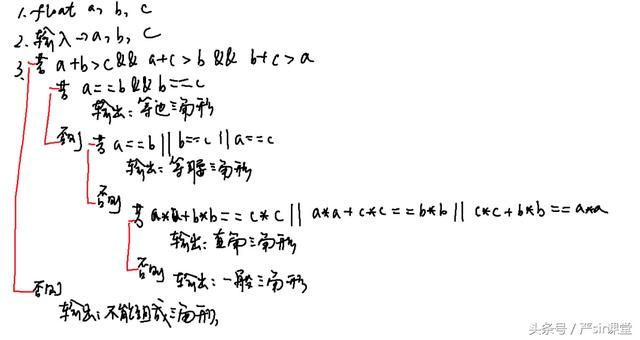 1. float a, b, c
2. 输入→a, b, c
3. 若 a+b>c && a+c>b && b+c>a
若 a==b && b==c
输出：等边三角形
否则 若 a==b || b==c || a==c
输出：等腰三角形
否则
若 a*a+b*b==c*c || a*a+c*c==b*b || c*c+b*b==a*a
输出：直角三角形
否则 输出：一般三角形
否则
输出：不能组成三角形，
头条号 / 严sin课堂